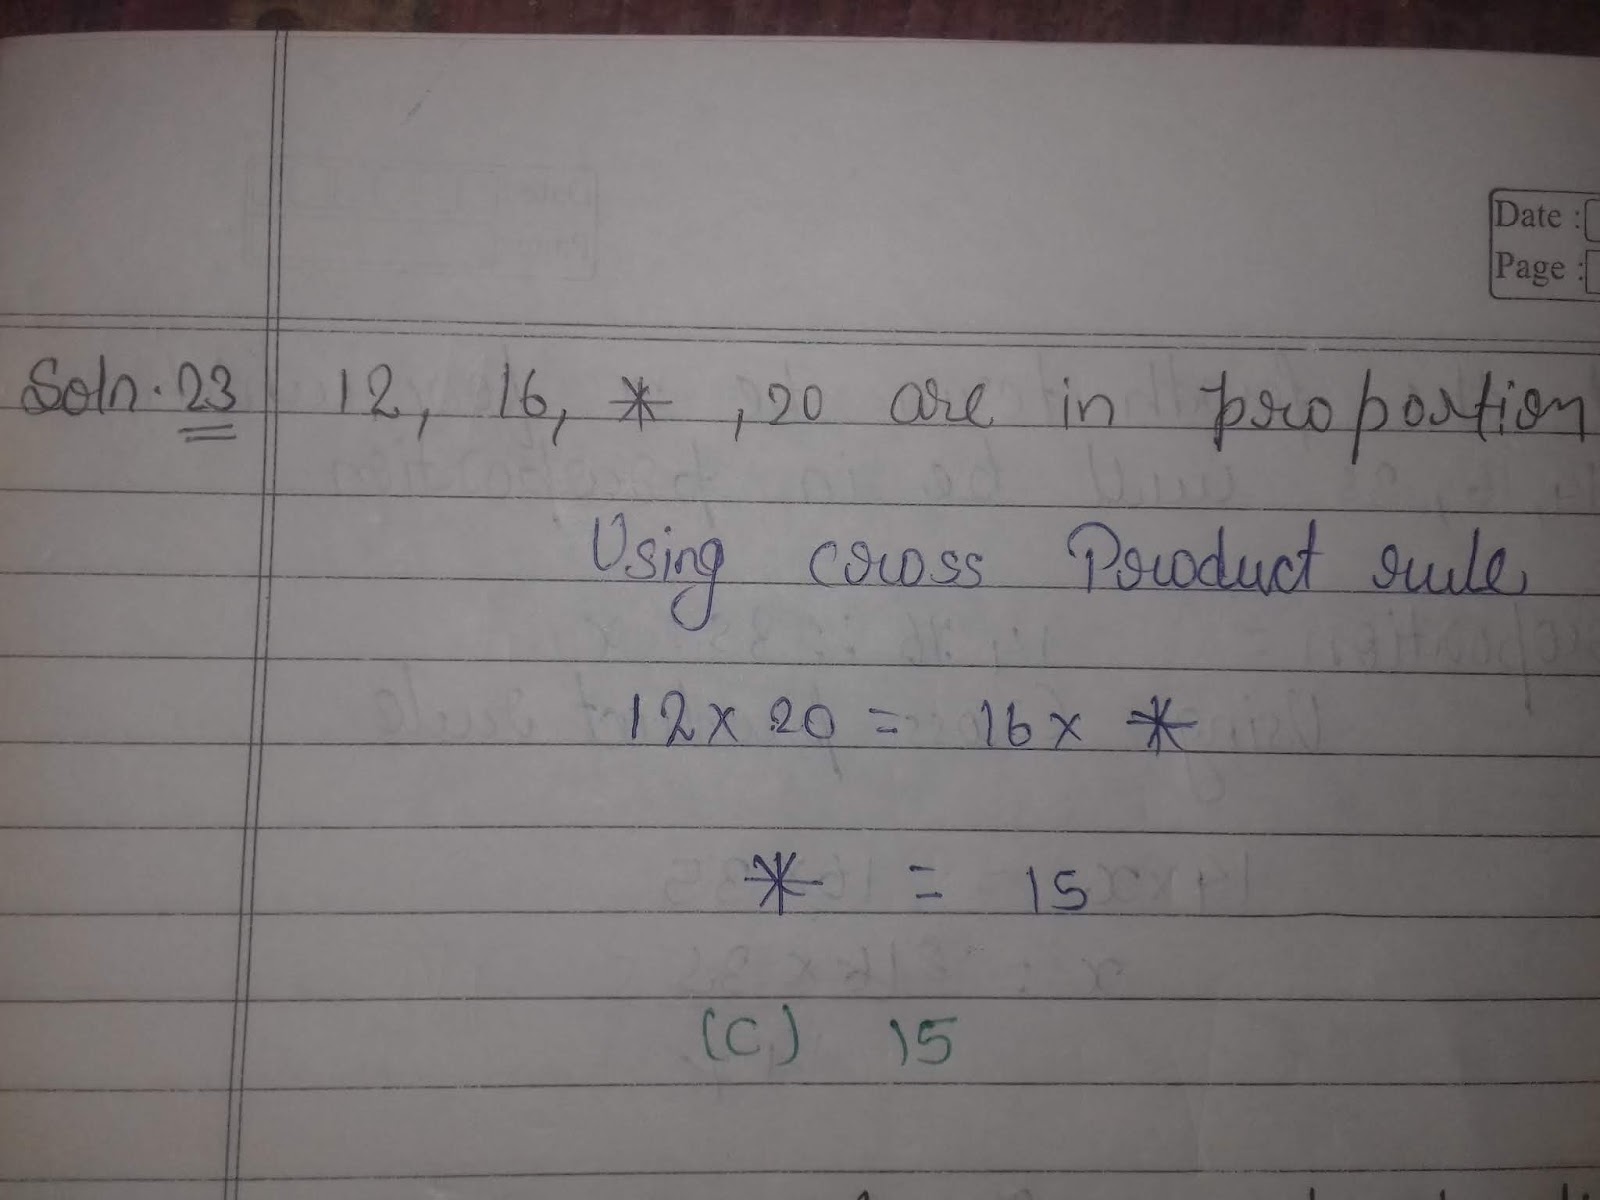 Date :
Page :
Soln. 23 12, 16, * , 20 are in proportion
Using cross Product rule
12 x 20 = 16 x *
* = 15
(C) 15